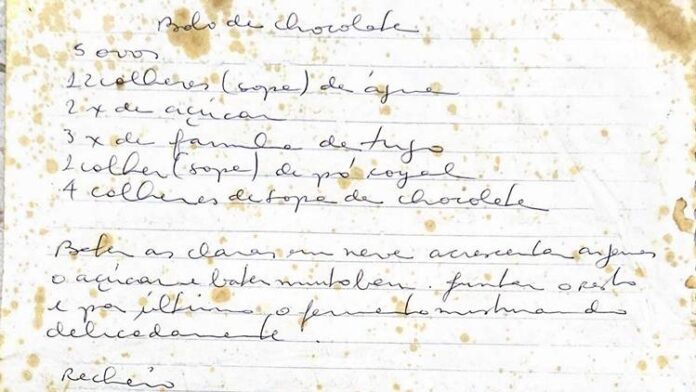 Bolo de chocolate
5 ovos
12 colheres (sopa) de água
2 x de açúcar
3 x de farinha de trigo
1 colher (sopa) de pó royal
4 colheres de sopa de chocolate
Bater as claras em neve acrescentar as gemas
o açúcar e bater muito bem. Juntar o resto
e por último o fermento misturando
delicadamente.
Recheio